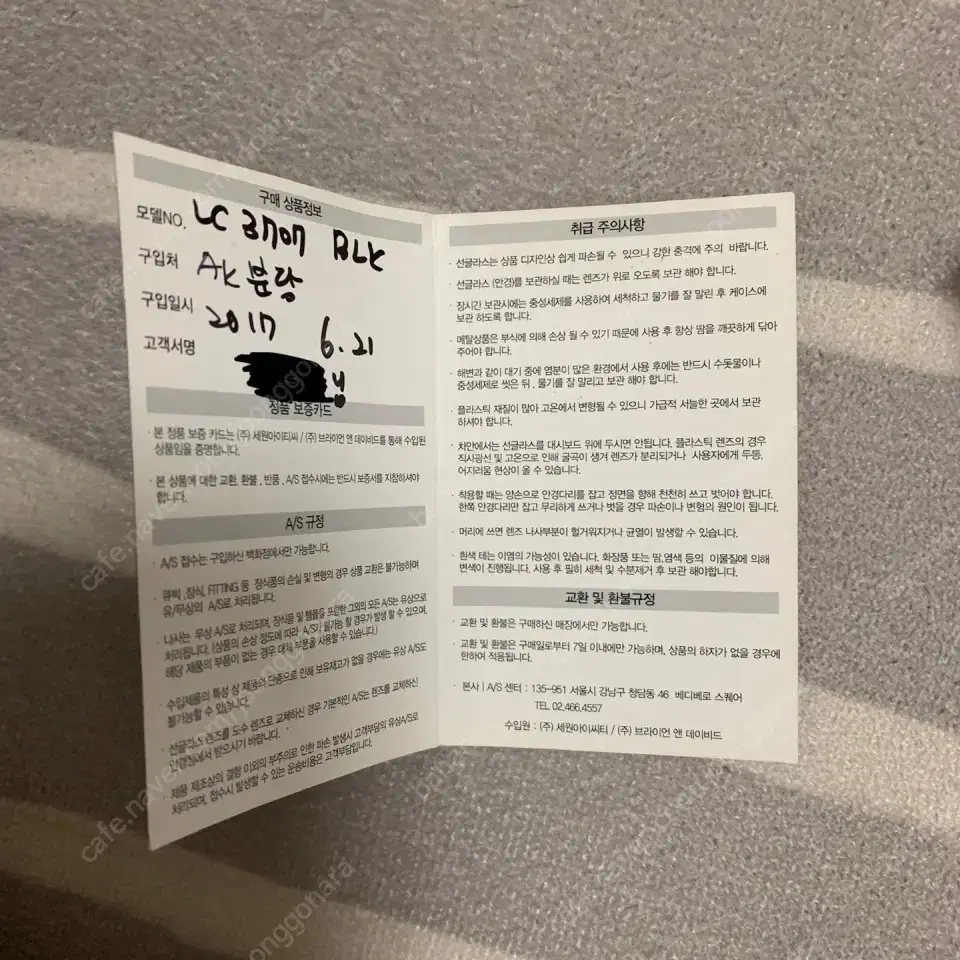 구매 상품정보
모델NO. LC 3707 BLK
구입처 AK 분당
구입일시 2017 6.21
고객서명 님
정품 보증카드
· 본 정품 보증 카드는 (주) 세원아이티씨 / (주) 브라이언 앤 데이비드를 통해 수입된
상품임을 증명합니다.
· 본 상품에 대한 교환, 환불, 반품, A/S 접수시에는 반드시 보증서를 지참하셔야
합니다.
A/S 규정
· A/S 접수는 구입하신 백화점에서만 가능합니다.
· 큐빅, 장식, FITTING 등 장식품의 손실 및 변형의 경우 상품 교환은 불가능하며
유/무상의 A/S로 처리됩니다.
· 나사는 무상 A/S로 처리되며, 장식품 및 템플을 포함한 그외의 모든 A/S는 유상으로
처리됩니다. (상품의 손상 정도에 따라 A/S가 불가능 할 경우가 발생 할 수 있으며,
해당 제품의 부품이 없는 경우 대체 부품을 사용할 수 있습니다.)
· 수입제품의 특성 상 제품의 단종으로 인해 보유재고가 없을 경우에는 유상 A/S도
불가능할 수 있습니다.
· 선글라스 렌즈를 도수 렌즈로 교체하신 경우 기본적인 A/S는 렌즈를 교체하신
안경점에서 받으시기 바랍니다.
· 제품 제조상의 결함 이외의 부주의로 인한 파손 발생시 고객부담의 유상A/S로
처리되며, 접수시 발생할 수 있는 운송비용은 고객부담입니다.
취급 주의사항
· 선글라스는 상품 디자인상 쉽게 파손될 수 있으니 강한 충격에 주의 바랍니다.
· 선글라스 (안경)를 보관하실 때는 렌즈가 위로 오도록 보관 해야 합니다.
· 장시간 보관시에는 중성세제를 사용하여 세척하고 물기를 잘 말린 후 케이스에
보관 하도록 합니다.
· 메탈상품은 부식에 의해 손상 될 수 있기 때문에 사용 후 항상 땀을 깨끗하게 닦아
주어야 합니다.
· 해변과 같이 대기 중에 염분이 많은 환경에서 사용 후에는 반드시 수돗물이나
중성세제로 씻은 뒤, 물기를 잘 말리고 보관 해야 합니다.
· 플라스틱 재질이 많아 고온에서 변형될 수 있으니 가급적 서늘한 곳에서 보관
하셔야 합니다.
· 차안에서는 선글라스를 대시보드 위에 두시면 안됩니다. 플라스틱 렌즈의 경우
직사광선 및 고온으로 인해 굴곡이 생겨 렌즈가 분리되거나 사용자에게 두통,
어지러움 현상이 올 수 있습니다.
· 착용할 때는 양손으로 안경다리를 잡고 정면을 향해 천천히 쓰고 벗어야 합니다.
한쪽 안경다리만 잡고 무리하게 쓰거나 벗을 경우 파손이나 변형의 원인이 됩니다.
· 머리에 쓰면 렌즈 나사부분이 헐거워지거나 균열이 발생할 수 있습니다.
· 흰색 테는 이염의 가능성이 있습니다. 화장품 또는 땀,염색 등의 이물질에 의해
변색이 진행됩니다. 사용 후 필히 세척 및 수분제거 후 보관 해야합니다.
교환 및 환불규정
· 교환 및 환불은 구매하신 매장에서만 가능합니다.
· 교환 및 환불은 구매일로부터 7일 이내에만 가능하며, 상품의 하자가 없을 경우에
한하여 적용됩니다.
· 본사 | A/S 센터 : 135-951 서울시 강남구 청담동 46 베디베로 스퀘어
TEL 02.466.4557
수입원 : (주) 세원아이씨티 / (주) 브라이언 앤 데이비드